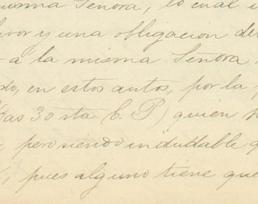 misma Señora, lo cual
favor y una obligacion de
a la misma Señora,
do, en estos autos, por la
as 30 sta C. P.) quien
pero siendo indudable q
, pues alguno tiene que